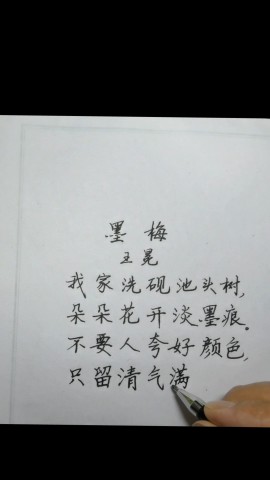 墨梅
王冕
我家洗砚池头树,
朵朵花开淡墨痕。
不要人夸好颜色,
只留清气满